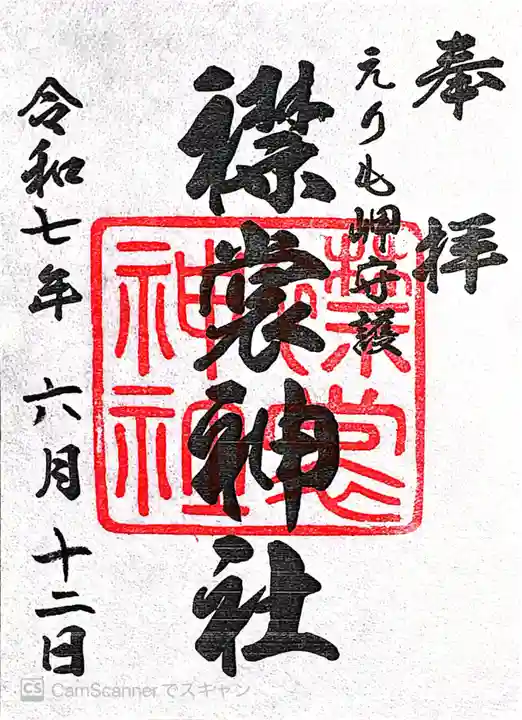 奉拝
えりも岬守護
襟裳神社
令和七年 六月 十二日
襟裳神社
CS CamScannerでスキャン